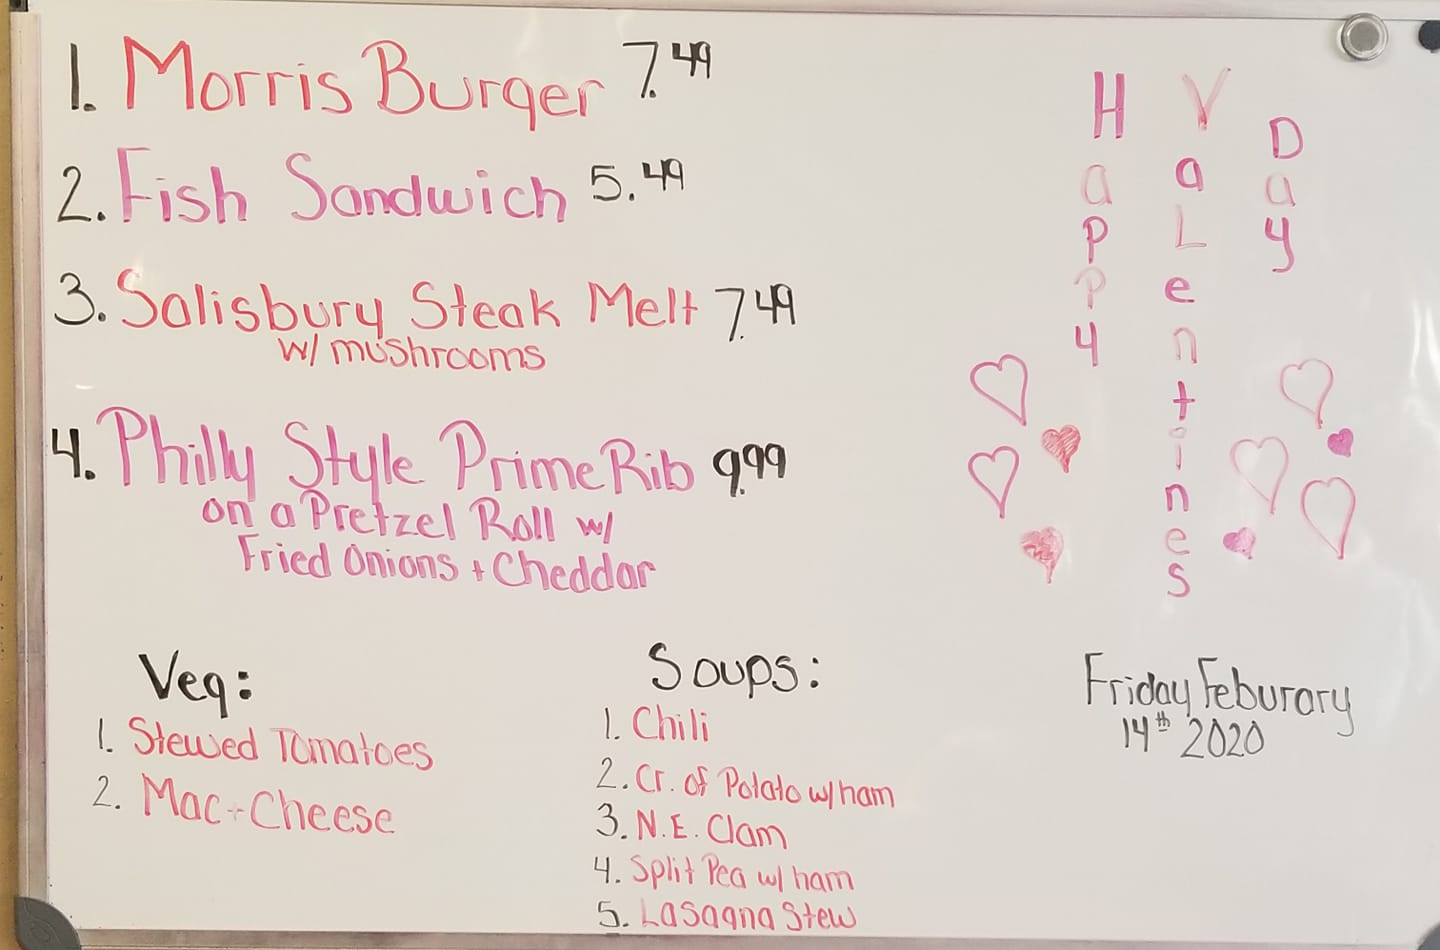 1. Morris Burger 7.49
2. Fish Sandwich 5.49
3. Salisbury Steak Melt 7.49
w/ mushrooms
4. Philly Style Prime Rib 9.99
on a Pretzel Roll w/
Fried Onions + Cheddar
Happy
Valentines
Day
Veg:
1. Stewed Tomatoes
2. Mac + Cheese
Soups:
1. Chili
2. Cr. of Potato w/ ham
3. N.E. Clam
4. Split Pea w/ ham
5. Lasagna Stew
Friday Feburary
14th 2020